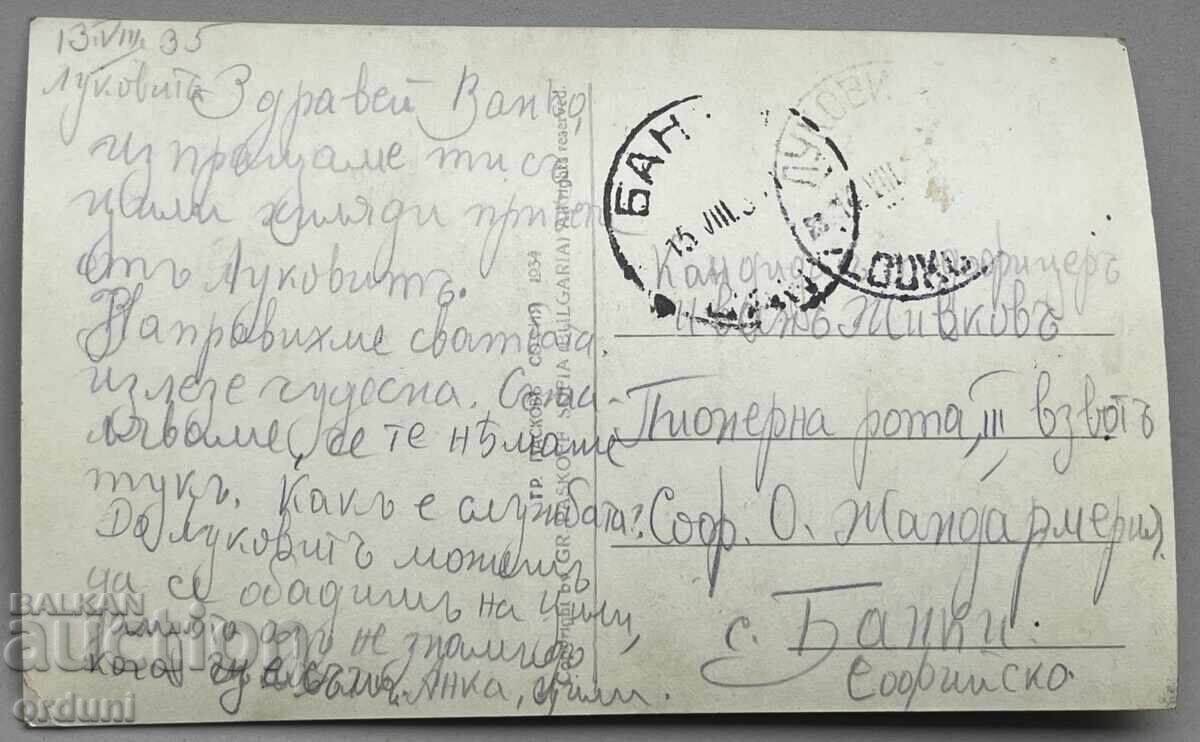 13.VIII.35
Луковитъ
Здравей Ванко,
изпращаме ти с
цели хиляди
отъ Луковитъ.
Направихме сватбата.
излезе чудесна. Съжа-
ляваме, че те нѣмаше
тукъ. Какъ е службата?
До Луковитъ можешъ
да се обадишъ на Цили,
не знамъ до
кога ще е Анка, Цили.
ГР. ПАСКОВЪ СОФИЯ 1934
GR. PASKOFF SOFIA (BULGARIA) All rights reserved.
БАН
15.VIII.3
ЛУКОВИ
VIII
Кандидатъ подофицеръ
Иванъ Живковъ
Пионерна рота, III взводъ
Соф. О. Жандармерия
с. Банки.
Софийско.
BALKAN
auction
orduni